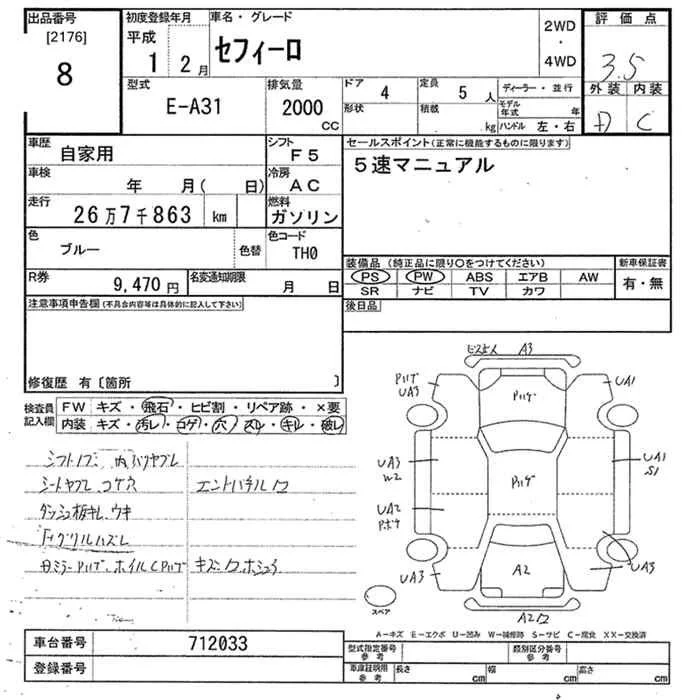 出品番号
[2176]
8
初度登録年月
平成
1 2月
車名・グレード
セフィーロ
2WD
・
4WD
評価点
3.5
外装 内装
D C
型式
E-A31
排気量
2000
CC
ドア 4
形状
定員 5 人
積載 kg
ディーラー・並行
モデル年式 年
ハンドル 左・右
車歴 自家用
車検 年 月( 日)
走行 26万7千863 km
色 ブルー
色替
シフト F5
冷房 AC
燃料 ガソリン
色コード TH0
R券 9,470 円
名変通知期限 月 日
セールスポイント(正常に機能するものに限ります)
5速マニュアル
装備品 (純正品に限り○をつけてください)
PS PW ABS エアB AW
SR ナビ TV カワ
新車保証書
有・無
後日品
注意事項申告欄(不具合内容等は具体的に記入して下さい)
修復歴 有〔箇所 〕
検査員記入欄
FW キズ・飛石・ヒビ割・リペア跡・×要
内装 キズ・汚レ・コゲ・穴・スレ・キレ・破レ
シートヤブレ コゲ穴
ダッシュ板キレ、ウキ
A3
Pハゲ
UA3
Pハゲ
UA1
UA3
W2
Pハゲ
UA1
S1
UA2
UA3
A2
UA3
スペア
A-キズ E-エクボ U-凹み W-補修跡 S-サビ C-腐食 XX-交換済
車台番号 712033
登録番号
型式指定番号 参考
類別区分番号 参考
車庫証明用 参考
長さ cm 幅 cm 高さ cm